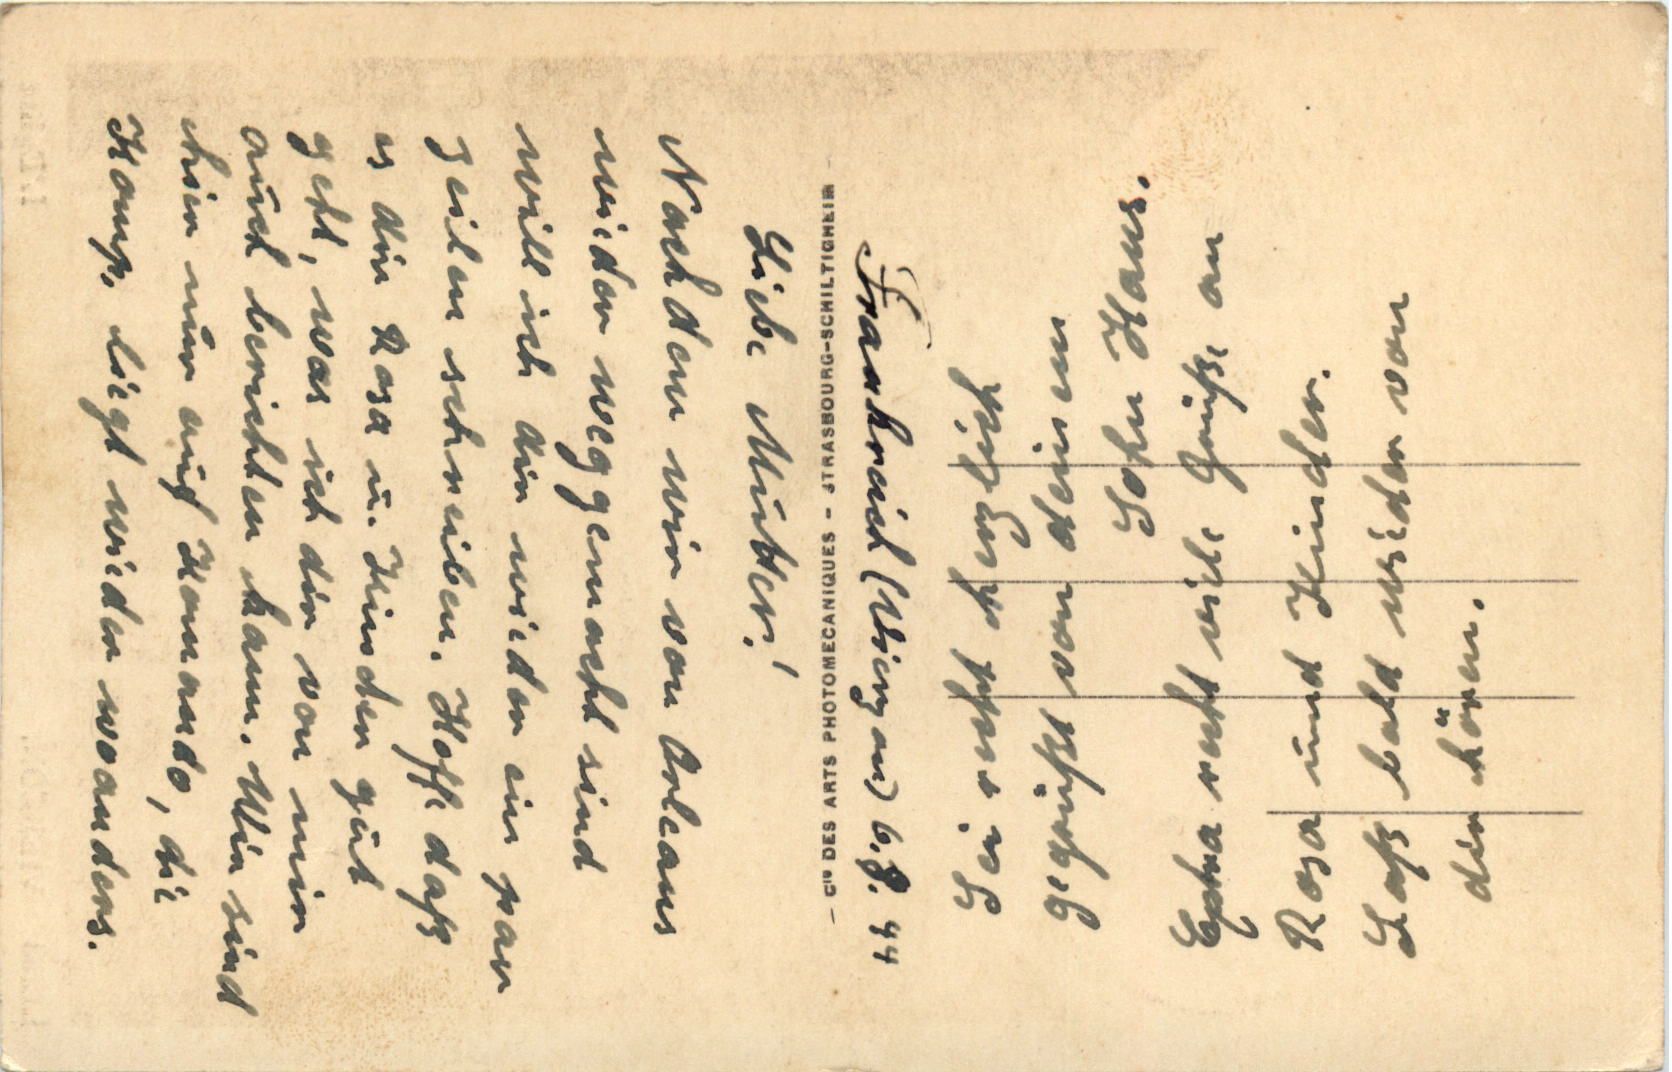 Frankreich (Vierzon) 6.8.44
Liebe Mutter!
Nachdem wir von Orleans
wieder weggemacht sind
will ich dir wieder ein paar
Zeilen schreiben. Hoffe daß
es dir Rosa u. Kinder gut
geht, was ich dir von mir
auch berichten kann. Wir sind
hier nur auf Komando, die
Komp. liegt wieder woanders.
Sei recht herzlich
gegrüßt von deinem
Sohn Hans.
Extra recht viele Grüße an
Rosa und Kinder.
Laß bald wieder von
dir hören.
– Cie DES ARTS PHOTOMECANIQUES – STRASBOURG-SCHILTIGHEIM –